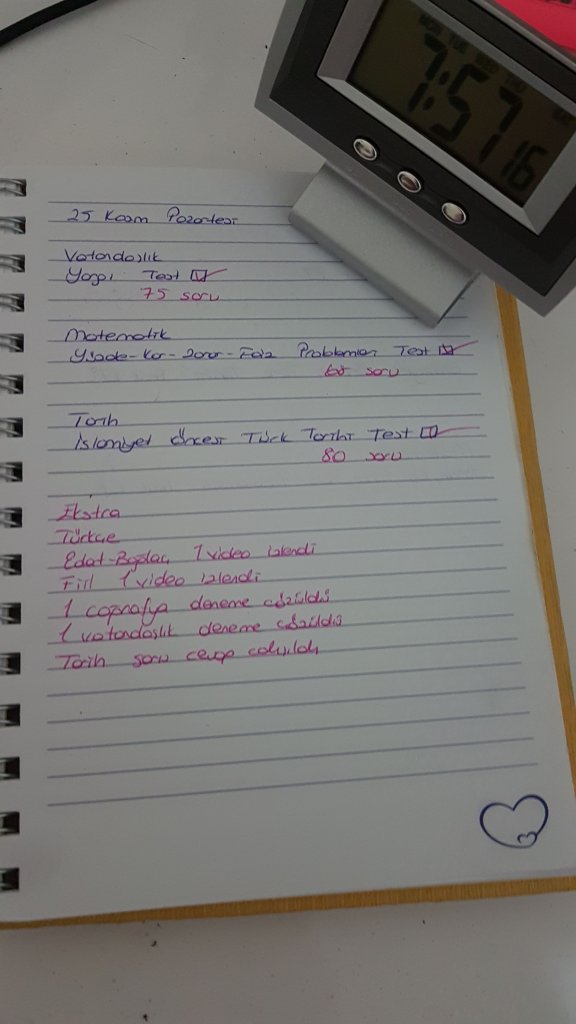 MON TUE WED THU
7:57 16
25 Kasım Pazartesi
Vatandaşlık
Yargı Test
75 soru
Matematik
Yüzde-Kar-Zarar-Faiz Problemleri Test
soru
Tarih
İslamiyet Öncesi Türk Tarihi Test
80 soru
Ekstra
Türkçe
Edat-Bağlaç 1 video izlendi
Fiil 1 video izlendi
1 coğrafya deneme çözüldü
1 vatandaşlık deneme çözüldü
Tarih soru cevap çalışıldı